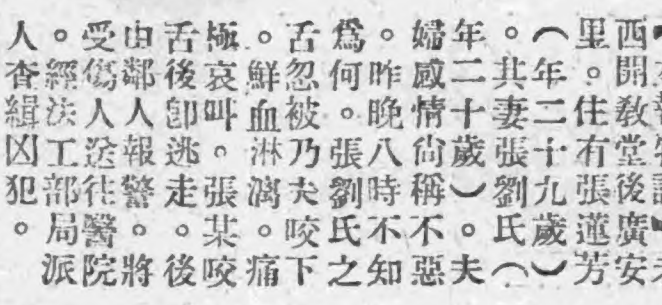 西開教堂後廣安
里。住有張蓮芳
（年二十九歲）
。其妻張劉氏（
年二十歲）。夫
婦感情尙稱不惡
。昨晚八時不知
爲何。張劉氏之
舌忽被乃夫咬下
。鮮血淋漓。痛
極哀叫。張某咬
舌後卽逃走。後
由鄰人報警。將
受傷人送往醫院
。經法工部局派
人查緝凶犯。